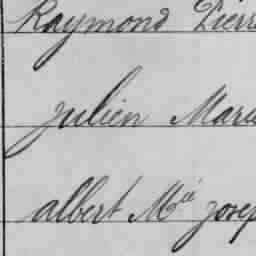 Raymond Pierr
Julien Marie
albert Mie josep